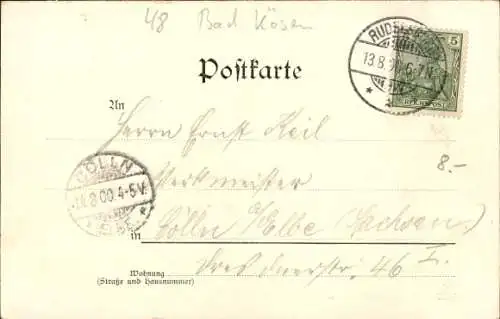 48 Bad Kösen
RUDELSBURG
5
13.8.00.6-7N.
REICHSPOST
Postkarte
An
Herrn Ernst Keil
Werkmeister
CÖLLN
14.8.00.4-5V.
(ELBE)
8.-
in Cölln a/Elbe (Sachsen)
Dresdnerstr. 46 I.
Wohnung
(Straße und Hausnummer)